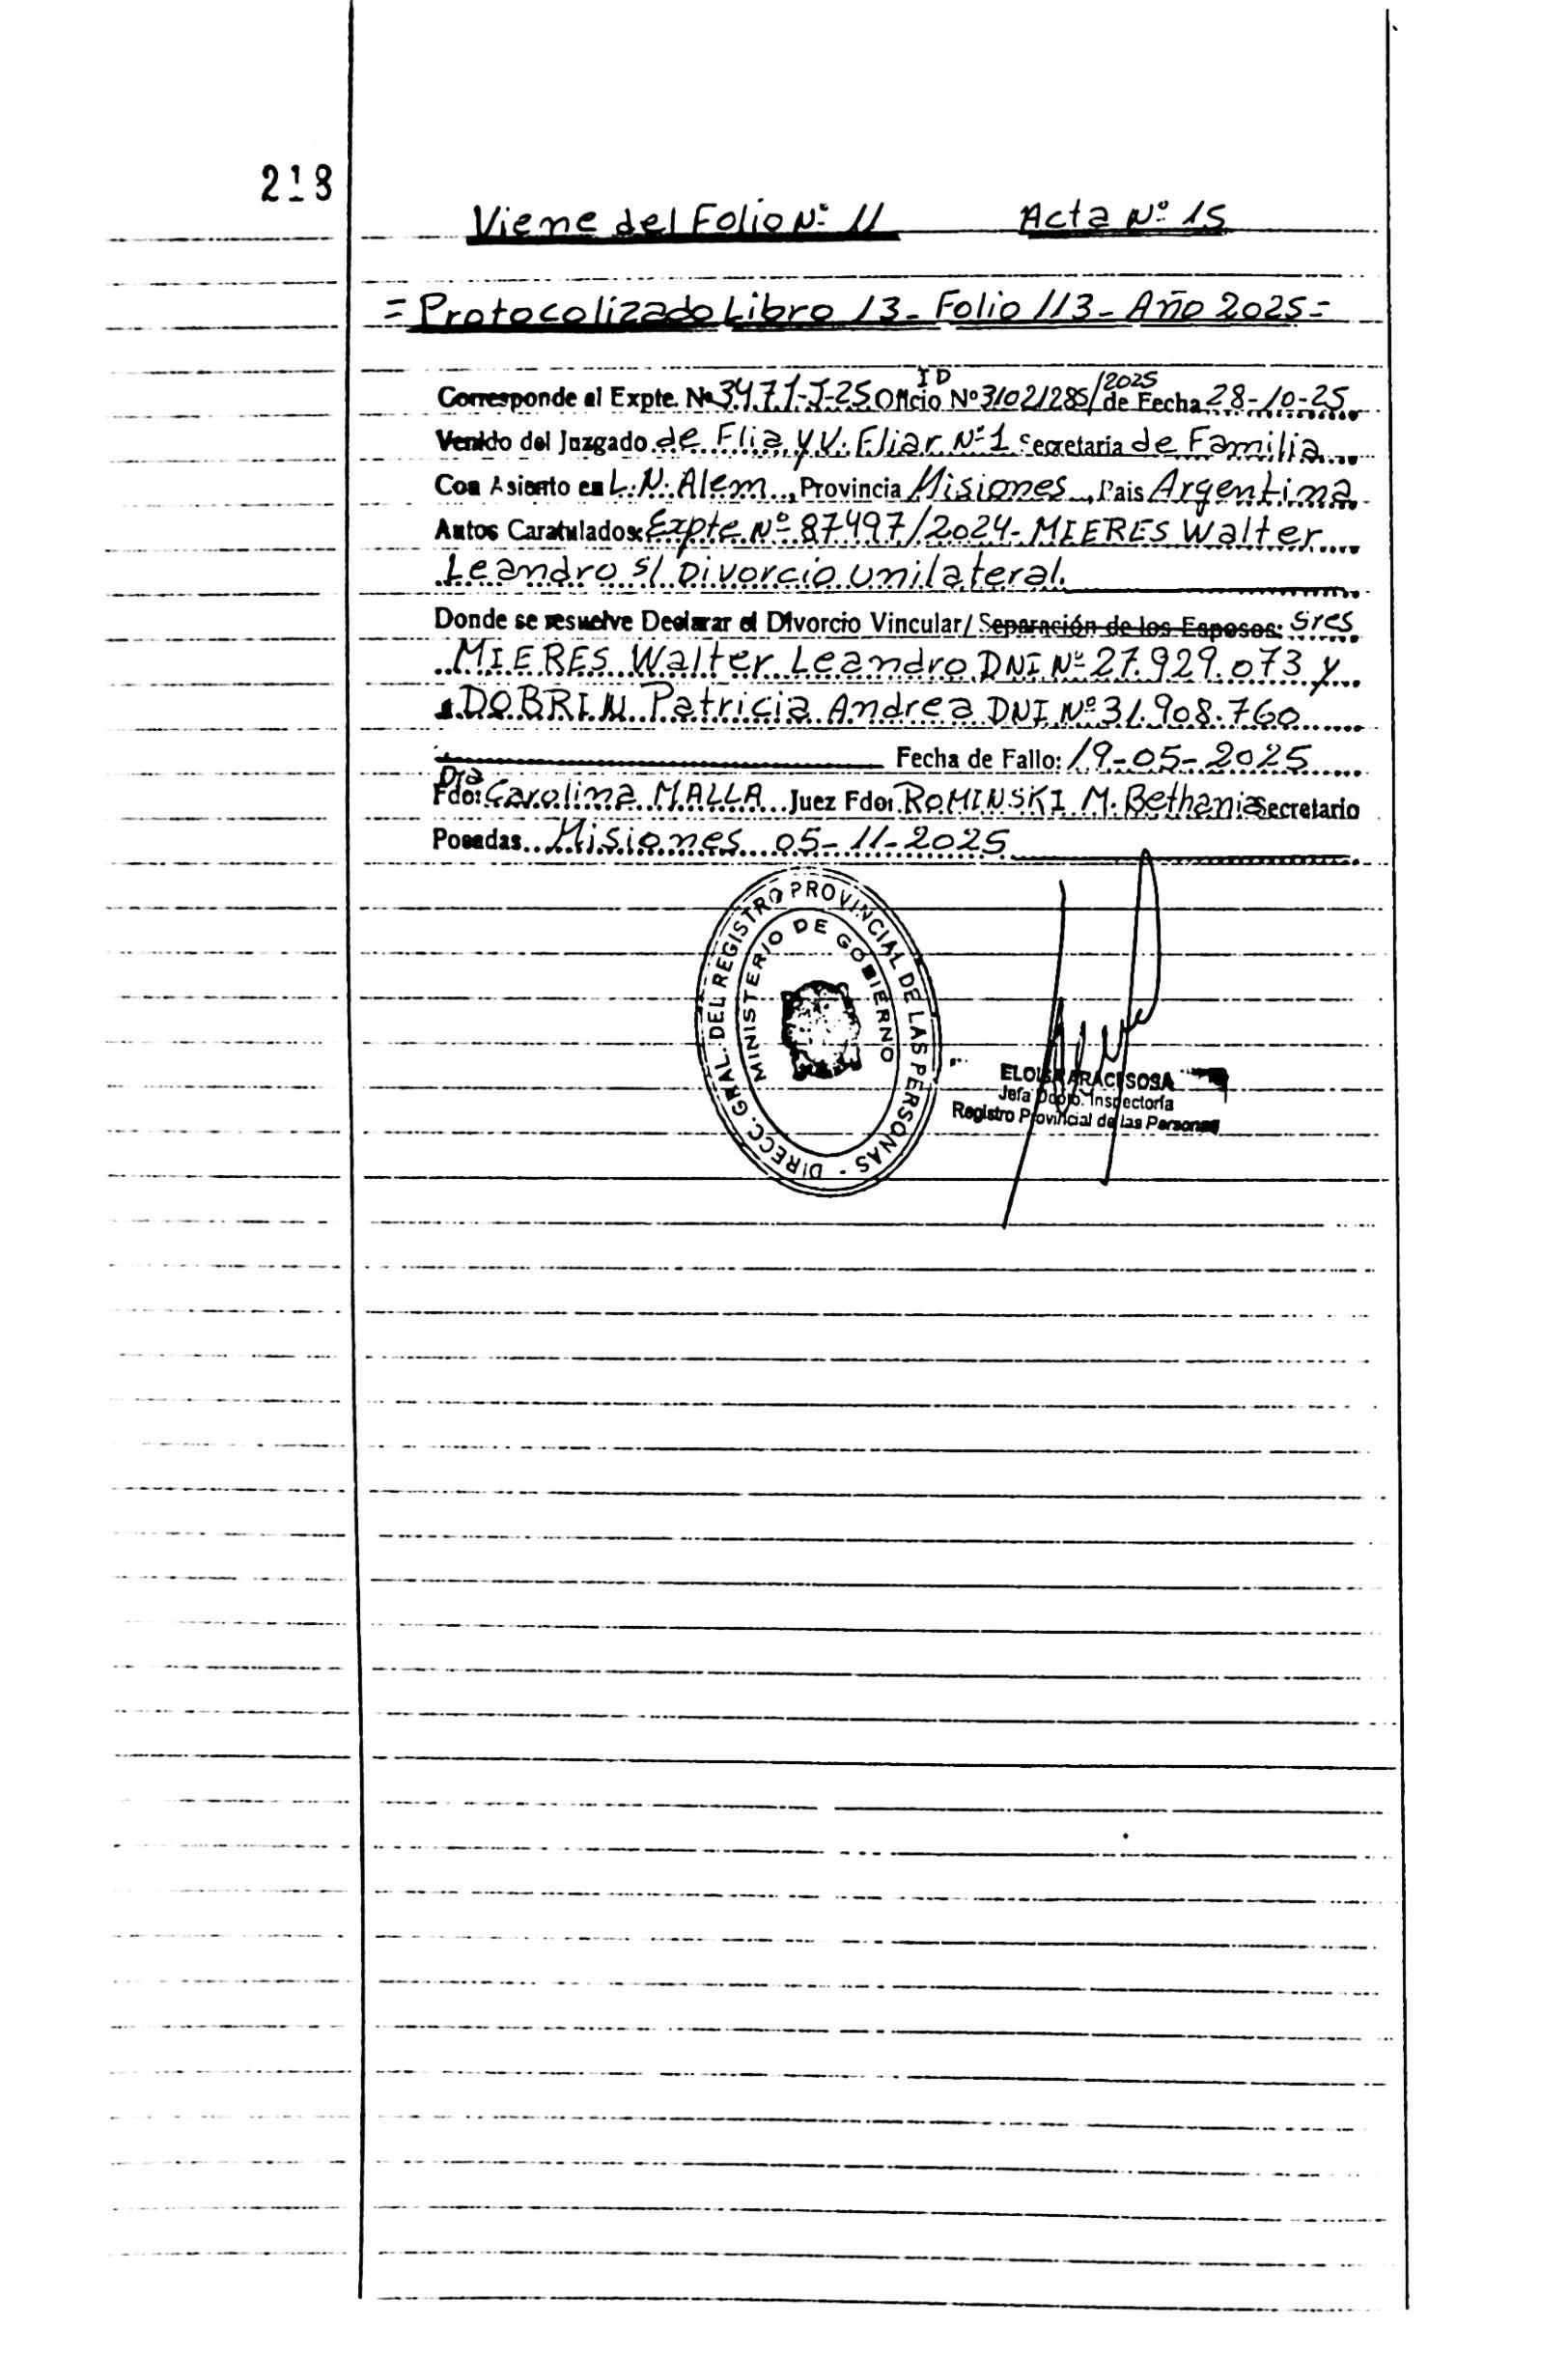 218
Viene del Folio Nº 11 Acta Nº 15
= Protocolizado Libro 13 - Folio 113 - Año 2025 =
Corresponde al Expte. Nº 3471-J-25 Oficio ID Nº 31021285/2025 de Fecha 28-10-25
Venido del Juzgado de Flia y V. Fliar Nº 1 Secretaria de Familia
Con Asiento en L.N. Alem, Provincia Misiones, Pais Argentina
Autos Caratulados: Expte Nº 87497/2024- MIERES Walter
Leandro s/ Divorcio unilateral.
Donde se resuelve Declarar el Divorcio Vincular/ Separación de los Esposos: Sres
MIERES Walter Leandro DNI Nº 27.929.073 y
DOBRIN Patricia Andrea DNI Nº 31.908.760
Fecha de Fallo: 19-05-2025
Fdo: Dra Carolina MALLA Juez Fdo: ROMINSKI M. Bethania Secretario
Posadas Misiones 05-11-2025
DIRECC. GRAL. DEL REGISTRO PROVINCIAL DE LAS PERSONAS -
MINISTERIO DE GOBIERNO
ELOISA ARACI SOSA
Jefa Dpto. Inspectoría
Registro Provincial de las Personas